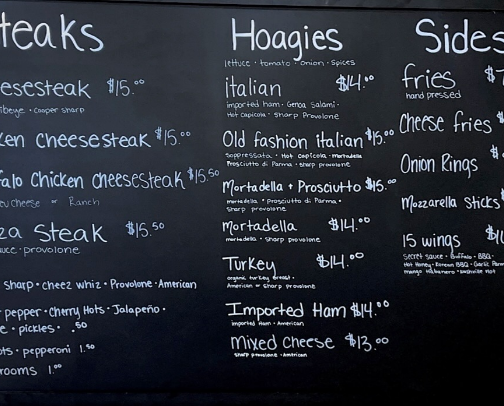 teaks
esesteak $15.00
ibeye • cooper sharp
ken cheesesteak $15.00
falo Chicken cheesesteak $15.50
eu cheese or Ranch
za Steak $15.50
uce • provolone
sharp • cheez whiz • Provolone • American
pepper • cherry Hots • Jalapeño •
e • pickles • .50
ots • pepperoni 1.50
rooms 1.00
Hoagies
lettuce • tomato • onion • spices
italian $14.00
imported ham • Genoa Salami •
Hot capicola • Sharp Provolone
Old fashion italian $15.00
Soppressata • Hot capicola • mortadella
Prosciutto di Parma • sharp provolone
Mortadella + Prosciutto $15.00
mortadella • Prosciutto di Parma •
Sharp provolone
Mortadella $14.00
mortadella • Sharp provolone
Turkey $14.00
organic turkey breast •
American or Sharp provolone
Imported Ham $14.00
imported Ham • American
mixed cheese $13.00
Sharp provolone • American
Sides
fries $
hand pressed
Cheese fries $
Onion Rings $
Mozzarella Sticks
15 wings $
Secret sauce • Buffalo • BBQ •
Hot Honey • Korean BBQ • Garlic Parm
mango Habanero •